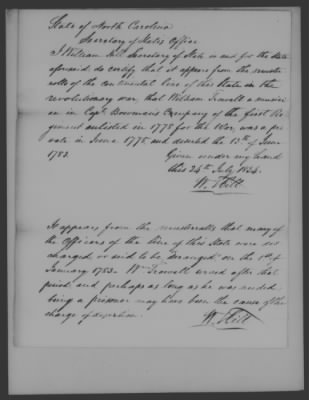 State of North Carolina
Secretary of States Office
I William Hill Secretary of State in and for the State
aforesaid do certify that it appears from the muster
rolls of the continental line of this State in the
revolutionary war, that William Trowell a musici
an in Capt. Bowmans Company of the first Re
giment enlisted in 1778 for the War, was a pri
vate in June 1778 and deserted the 13th of June
1783.
Given under my hand
this 24th July 1824.
W. Hill
It appears from the musterrolls that many of
the Officers of the line of this State were dis
charged or said to be deranged on the 1st of
January 1783. Wm Trowell served after that
period and perhaps as long as he was needed
being a prisoner may have been the cause of the
charge of desertion.
W. Hill